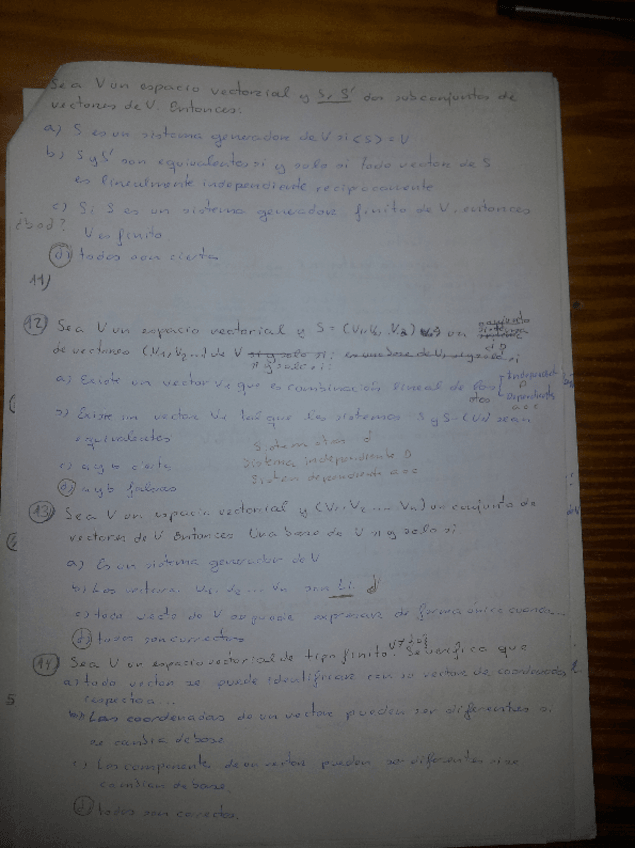 Sea V un espacio vectorial y S, S' dos subconjuntos de
vectores de V. Entonces:
a) S es un sistema generador de V si (S) = V
b) S y S' son equivalentes si y solo si todo vector de S
es linealmente independiente reciprocamente
c) Si S es un sistema generador finito de V, entonces
¿bod?
V es finito
d) todos son cierta
11)
12) Sea V un espacio vectorial y S = (V1, V2) un conjunto
de vectores (V1, V2...) de V si y solo si:
a) Existe un vector Vk que es combinación lineal de los
otos
Independiente
D
Dependiente
a o c
b) Existe un vector Vk tal que los sistemas S y S-(Vk) sean
equivalentes
Sistem otos d
c) a y b cierta
Sistema independiente D
Sistem dependiente a o c
d) a y b falsas
13) Sea V un espacio vectorial y (V1, V2 ... Vn) un conjunto de
vectores de V. Entonces Una base de V si y solo si
a) Es un sistema generador de V
b) Los vectores V1, V2 ... Vn son LI d
c) todo vecto de V se puede expresar de forma única cuando...
d) todos son correctos
14) Sea V un espacio vectorial de tipo finito. Se verifica que
a) todo vector se puede identificar con su vector de coordenadas
respecto a...
b) Las coordenadas de un vector pueden ser diferentes si
se cambia de base
c) Los componente de un vector pueden ser diferentes si se
cambian de base.
d) todos son correctos.
5